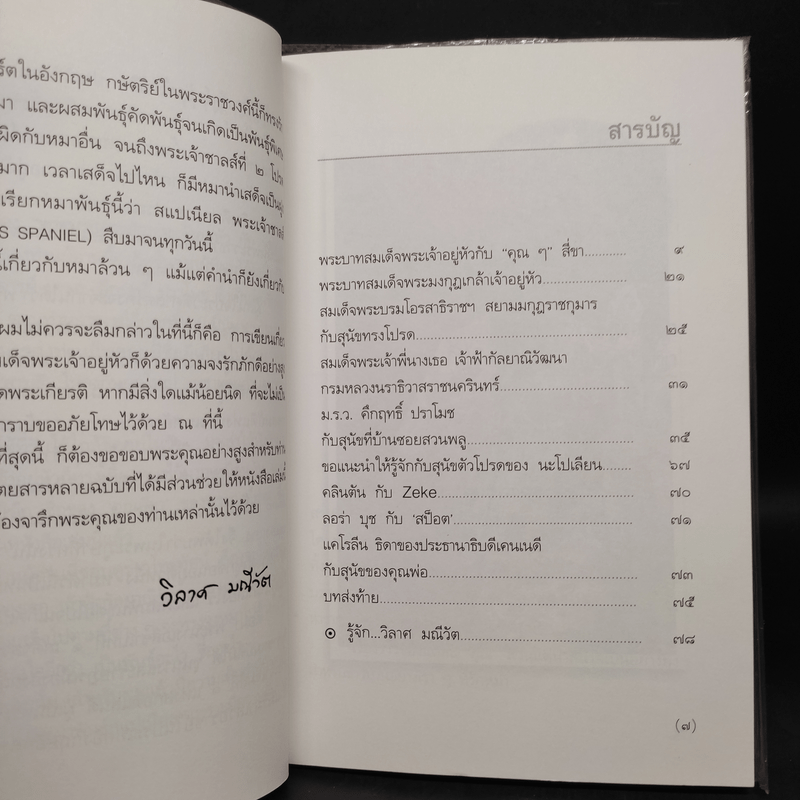 ร์ตในอังกฤษ กษัตริย์ในพระราชวงศ์นี้ก็ทรง
มา และผสมพันธุ์คัดพันธุ์จนเกิดเป็นพันธุ์พิเศษ
ผิดกับหมาอื่น จนถึงพระเจ้าชาลส์ที่ ๒ โปรด
มาก เวลาเสด็จไปไหน ก็มีหมานำเสด็จเป็น
เรียกหมาพันธุ์นี้ว่า สแปเนียล พระเจ้าชาลส์
S SPANIEL) สืบมาจนทุกวันนี้
เกี่ยวกับหมาล้วน ๆ แม้แต่คำนำก็ยังเกี่ยวกับ
ผมไม่ควรจะลืมกล่าวในที่นี้ก็คือ การเขียนเกี่ยว
มเด็จพระเจ้าอยู่หัวก็ด้วยความจงรักภักดีอย่าง
ดพระเกียรติ หากมีสิ่งใดแม้น้อยนิด ที่จะไม่เป็น
กราบขออภัยโทษไว้ด้วย ณ ที่นี้
ที่สุดนี้ ก็ต้องขอขอบพระคุณอย่างสูงสำหรับท่าน
ตยสารหลายฉบับที่ได้มีส่วนช่วยให้หนังสือเล่มนี้
้องจารึกพระคุณของท่านเหล่านั้นไว้ด้วย
วิลาศ มณีวัต
สารบัญ
พระบาทสมเด็จพระเจ้าอยู่หัวกับ “คุณ ๆ” สี่ขา............ ๙
พระบาทสมเด็จพระมงกุฎเกล้าเจ้าอยู่หัว.................... ๒๑
สมเด็จพระบรมโอรสาธิราชฯ สยามมกุฎราชกุมาร
กับสุนัขทรงโปรด.................... ๒๕
สมเด็จพระเจ้าพี่นางเธอ เจ้าฟ้ากัลยาณิวัฒนา
กรมหลวงนราธิวาสราชนครินทร์.................... ๓๑
ม.ร.ว. คึกฤทธิ์ ปราโมช
กับสุนัขที่บ้านซอยสวนพลู.................... ๓๕
ขอแนะนำให้รู้จักกับสุนัขตัวโปรดของ นะโปเลียน........ ๖๗
คลินตัน กับ Zeke.................... ๗๐
ลอร่า บุช กับ ‘สป็อต’.................... ๗๑
แคโรลีน ธิดาของประธานาธิบดีเคนเนดี
กับสุนัขของคุณพ่อ.................... ๗๓
บทส่งท้าย.................... ๗๕
๏ รู้จัก...วิลาศ มณีวัต.................... ๗๘
(๗)